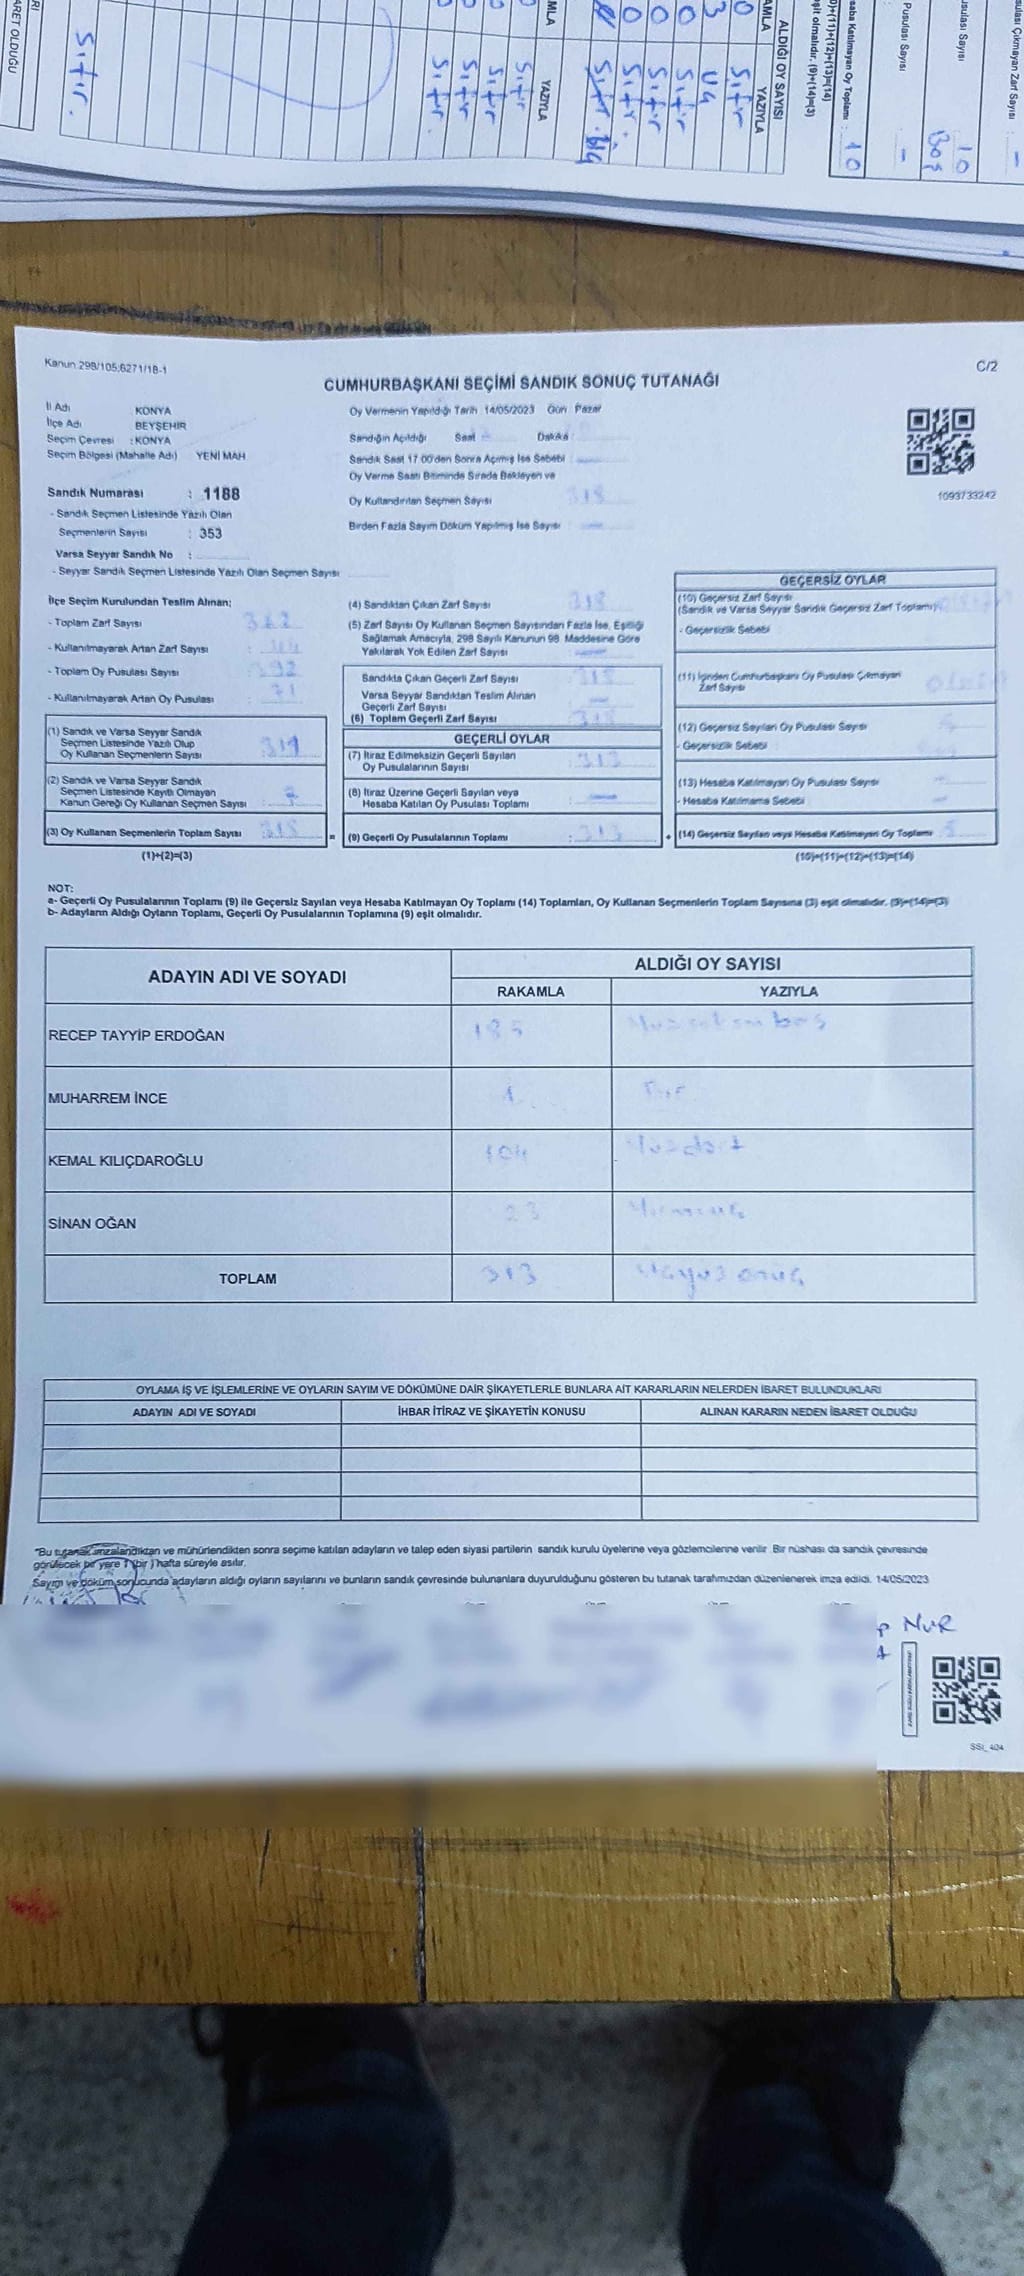 ARET OLDUĞU
Sıfır.
Sıfır.
Sıfır
Sıfır
Sıfır
YAZIYLA
Sıfır.
Sıfır
Sıfır
üç
Sıfır
YAZIYLA
ALDIĞI OY SAYISI
(9)+(14)=(3)
saba Katılmayan Oy Toplamı : 10
Pusulası Sayısı : -
usulası Sayısı : 10
Boş
sulası Çıkmayan Zarf Sayısı : -
Kanun 298/105;6271/18-1
C/2
CUMHURBAŞKANI SEÇİMİ SANDIK SONUÇ TUTANAĞI
İl Adı KONYA
İlçe Adı BEYŞEHİR
Seçim Çevresi : KONYA
Seçim Bölgesi (Mahalle Adı) YENİ MAH
Sandık Numarası : 1188
- Sandık Seçmen Listesinde Yazılı Olan
Seçmenlerin Sayısı : 353
Varsa Seyyar Sandık No :
- Seyyar Sandık Seçmen Listesinde Yazılı Olan Seçmen Sayısı
Oy Vermenin Yapıldığı Tarih 14/05/2023 Gün Pazar
Sandığın Açıldığı Saat Dakika
Sandık Saat 17 00'den Sonra Açımış İse Sebebi
Oy Verme Saati Bitiminde Sırada Bekleyen ve
Oy Kullandırılan Seçmen Sayısı 318
Birden Fazla Sayım Döküm Yapılmış İse Sayısı
1093733242
İlçe Seçim Kurulundan Teslim Alınan;
- Toplam Zarf Sayısı
- Kullanılmayarak Artan Zarf Sayısı
- Toplam Oy Pusulası Sayısı : 392
- Kullanılmayarak Artan Oy Pusulası : 71
(1) Sandık ve Varsa Seyyar Sandık
Seçmen Listesinde Yazılı Olup
Oy Kullanan Seçmenlerin Sayısı
(2) Sandık ve Varsa Seyyar Sandık
Seçmen Listesinde Kayıtlı Olmayan
Kanun Gereği Oy Kullanan Seçmen Sayısı
(3) Oy Kullanan Seçmenlerin Toplam Sayısı 318
(1)+(2)=(3)
(4) Sandıktan Çıkan Zarf Sayısı 318
(5) Zarf Sayısı Oy Kullanan Seçmen Sayısından Fazla İse, Eşitliği
Sağlamak Amacıyla, 298 Sayılı Kanunun 98. Maddesine Göre
Yakılarak Yok Edilen Zarf Sayısı
Sandıkta Çıkan Geçerli Zarf Sayısı 318
Varsa Seyyar Sandıktan Teslim Alınan
Geçerli Zarf Sayısı
(6) Toplam Geçerli Zarf Sayısı 318
GEÇERLİ OYLAR
(7) İtiraz Edilmeksizin Geçerli Sayılan
Oy Pusulalarının Sayısı : 313
(8) İtiraz Üzerine Geçerli Sayılan veya
Hesaba Katılan Oy Pusulası Toplamı
= (9) Geçerli Oy Pusulalarının Toplamı : 313 +
GEÇERSİZ OYLAR
(10) Geçersiz Zarf Sayısı
(Sandık ve Varsa Seyyar Sandık Geçersiz Zarf Toplamı)
- Geçersizlik Sebebi
(11) İçinden Cumhurbaşkanı Oy Pusulası Çıkmayan
Zarf Sayısı
(12) Geçersiz Sayılan Oy Pusulası Sayısı
- Geçersizlik Sebebi
(13) Hesaba Katılmayan Oy Pusulası Sayısı
- Hesaba Katılmama Sebebi
(14) Geçersiz Sayılan veya Hesaba Katılmayan Oy Toplamı 5
(10)+(11)+(12)+(13)=(14)
NOT:
a- Geçerli Oy Pusulalarının Toplamı (9) ile Geçersiz Sayılan veya Hesaba Katılmayan Oy Toplamı (14) Toplamları, Oy Kullanan Seçmenlerin Toplam Sayısına (3) eşit olmalıdır. (9)+(14)=(3)
b- Adayların Aldığı Oyların Toplamı, Geçerli Oy Pusulalarının Toplamına (9) eşit olmalıdır.
ADAYIN ADI VE SOYADI ALDIĞI OY SAYISI
RAKAMLA YAZIYLA
RECEP TAYYİP ERDOĞAN 185 Yüzseksenbeş
MUHARREM İNCE 1 Bir
KEMAL KILIÇDAROĞLU 104 Yüzdört
SİNAN OĞAN 23 Yirmiüç
TOPLAM 313 Üçyüzonüç
OYLAMA İŞ VE İŞLEMLERİNE VE OYLARIN SAYIM VE DÖKÜMÜNE DAİR ŞİKAYETLERLE BUNLARA AİT KARARLARIN NELERDEN İBARET BULUNDUKLARI
ADAYIN ADI VE SOYADI İHBAR İTİRAZ VE ŞİKAYETİN KONUSU ALINAN KARARIN NEDEN İBARET OLDUĞU
"Bu tutanak imzalandıktan ve mühürlendikten sonra seçime katılan adayların ve talep eden siyasi partilerin sandık kurulu üyelerine veya gözlemcilerine verilir. Bir nüshası da sandık çevresinde
görülecek bir yere 1 (bir ) hafta süreyle asılır.
Sayım ve döküm sonucunda adayların aldığı oyların sayılarını ve bunların sandık çevresinde bulunanlara duyurulduğunu gösteren bu tutanak tarafımızdan düzenlenerek imza edildi. 14/05/2023
NUR
SSI_404